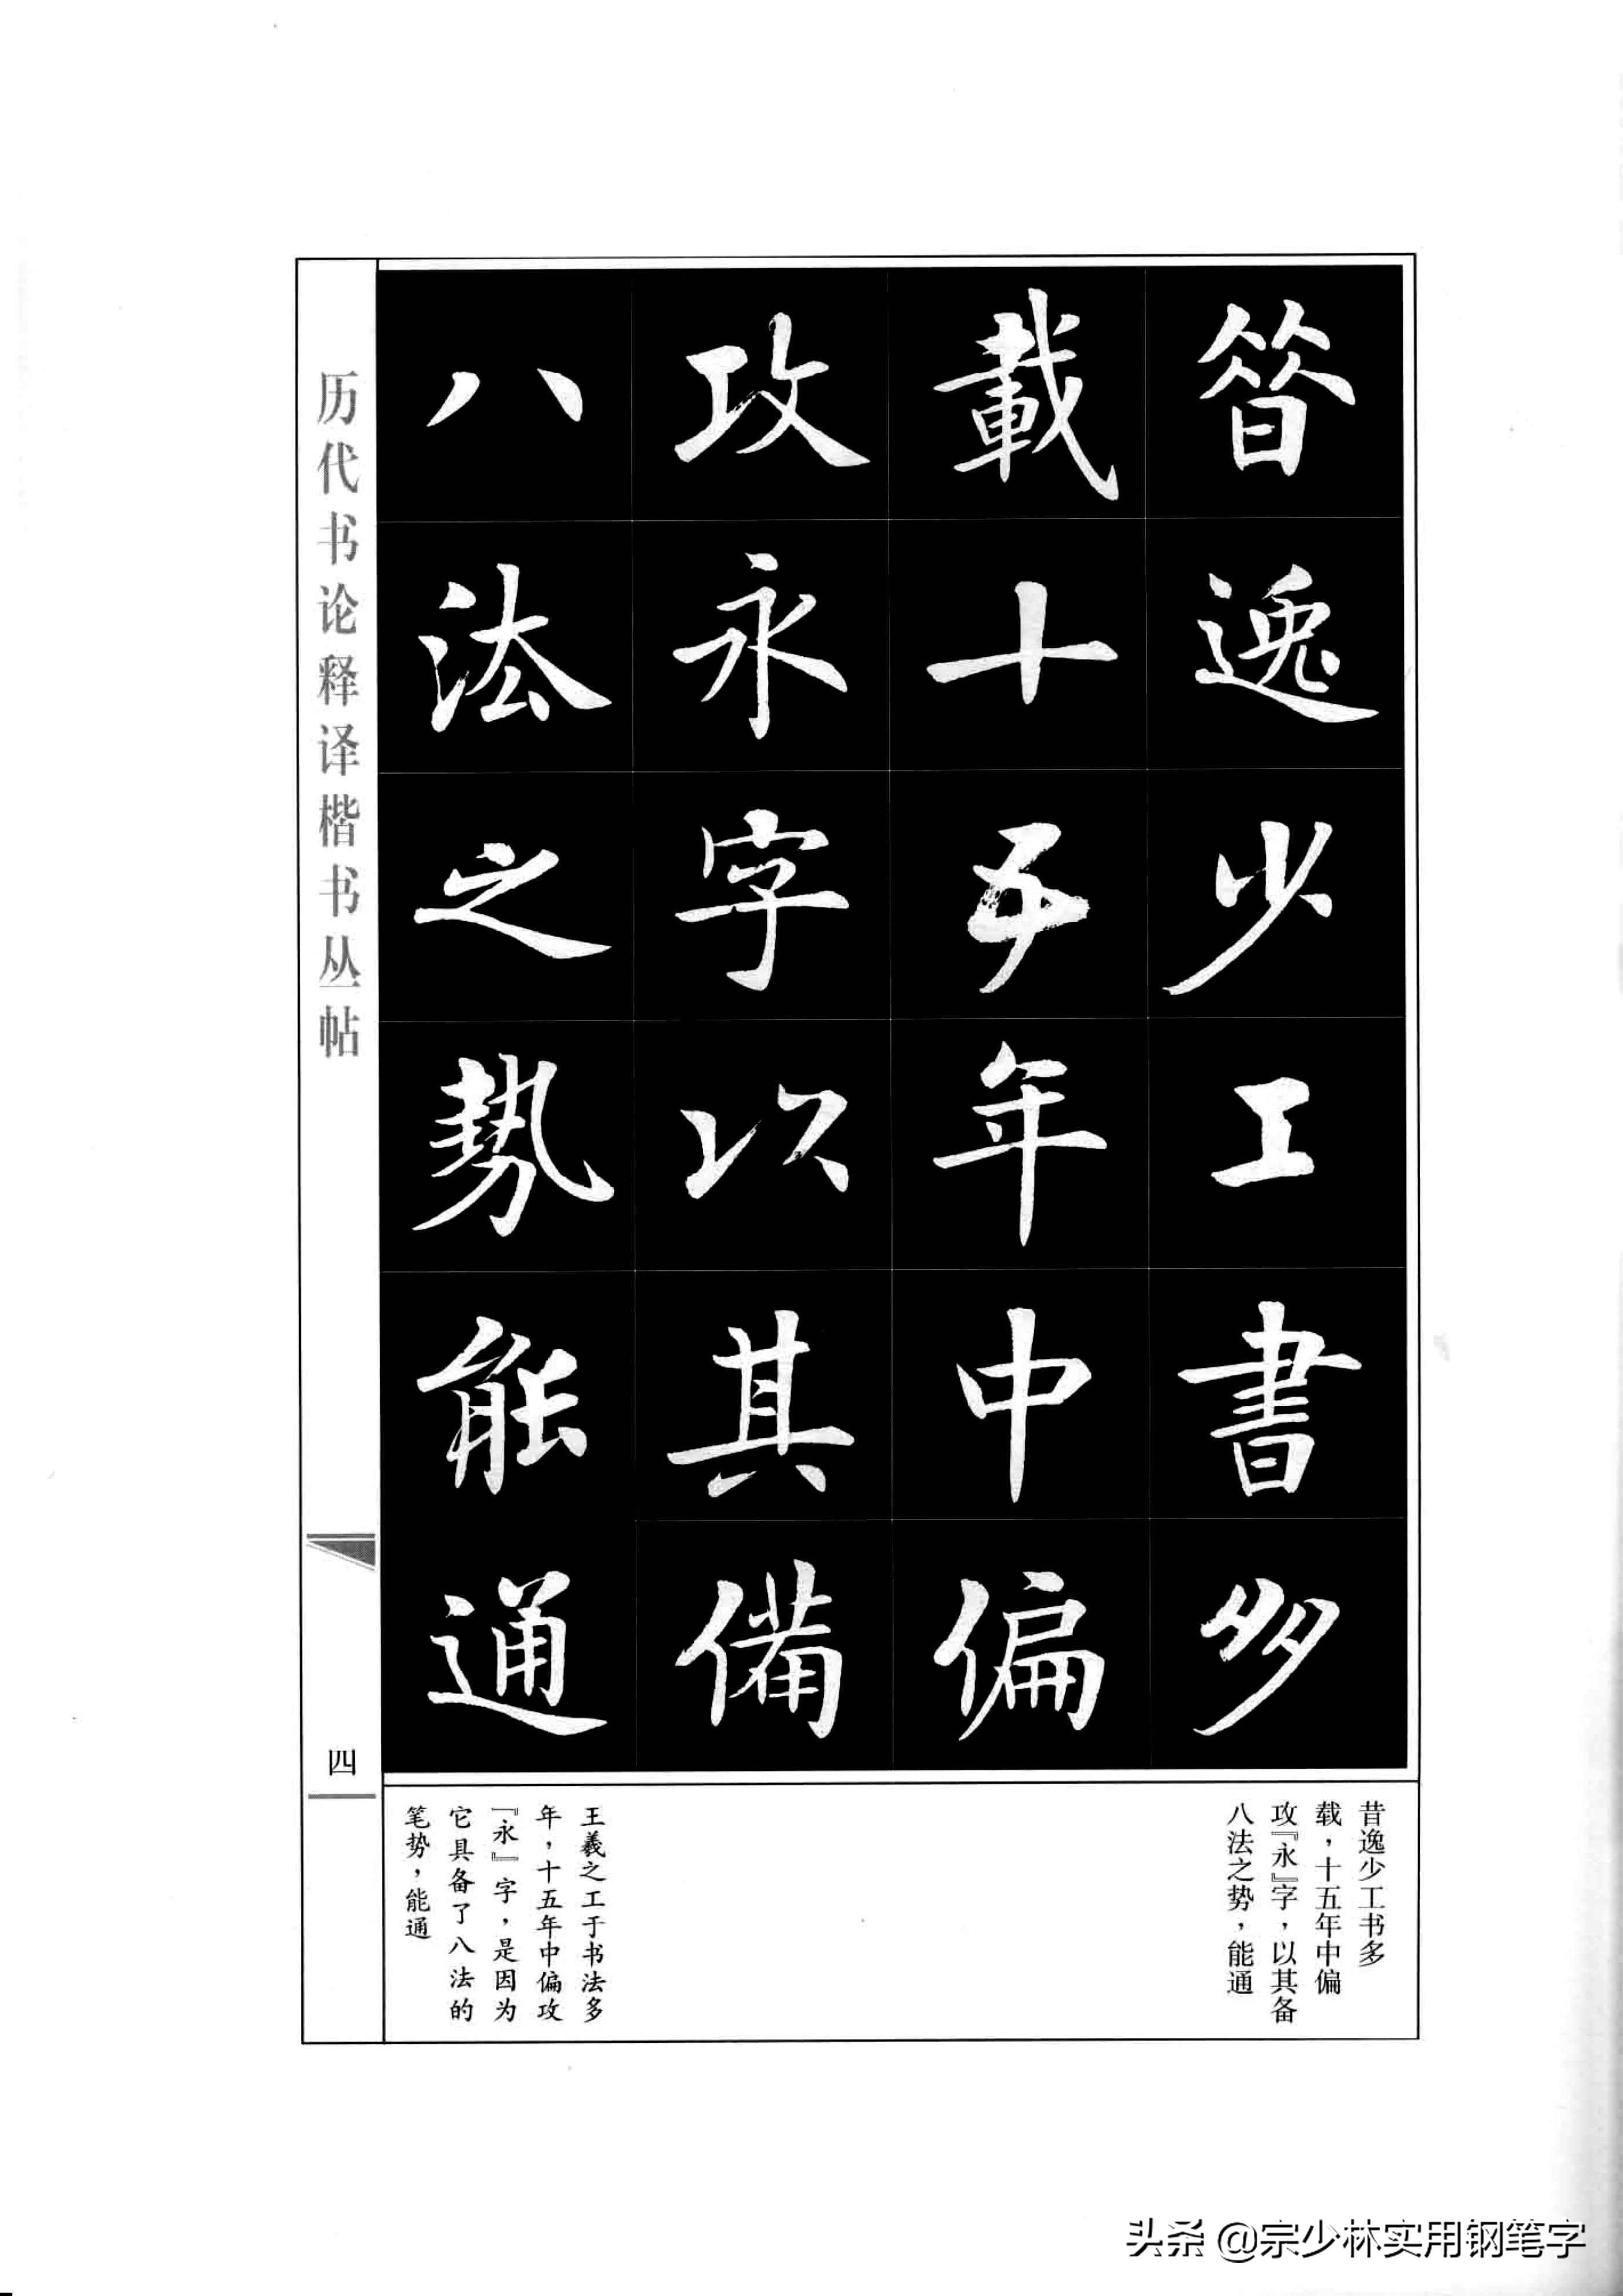 昔逸少工書多
載十五年中偏
攻永字以其備
八法之勢能通
历代书论释译楷书丛帖
四
昔逸少工书多
载，十五年中偏
攻『永』字，以其备
八法之势，能通
王羲之工于书法多
年，十五年中偏攻
『永』字，是因为
它具备了八法的
笔势，能通
头条 @宗少林实用钢笔字